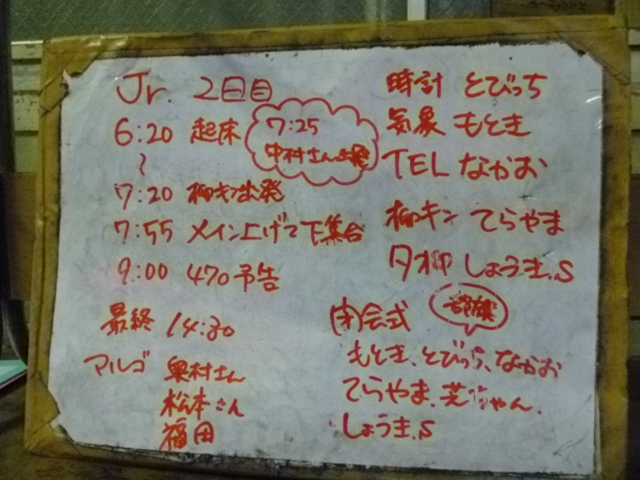 Jr. 2日目
6:20 起床
7:25
中村さん出発
〜
7:20 柳キン出発
7:55 メイン上げて下集合
9:00 470予告
最終 14:30
マルゴ 奥村さん
松本さん
福田
時計 とびっち
気象 もとき
TEL なかお
柳キン てらやま
夕柳 しょうき、S
閉会式
部旗
もとき、とびっち、なかお
てらやま、芝ちゃん、
しょうき、S